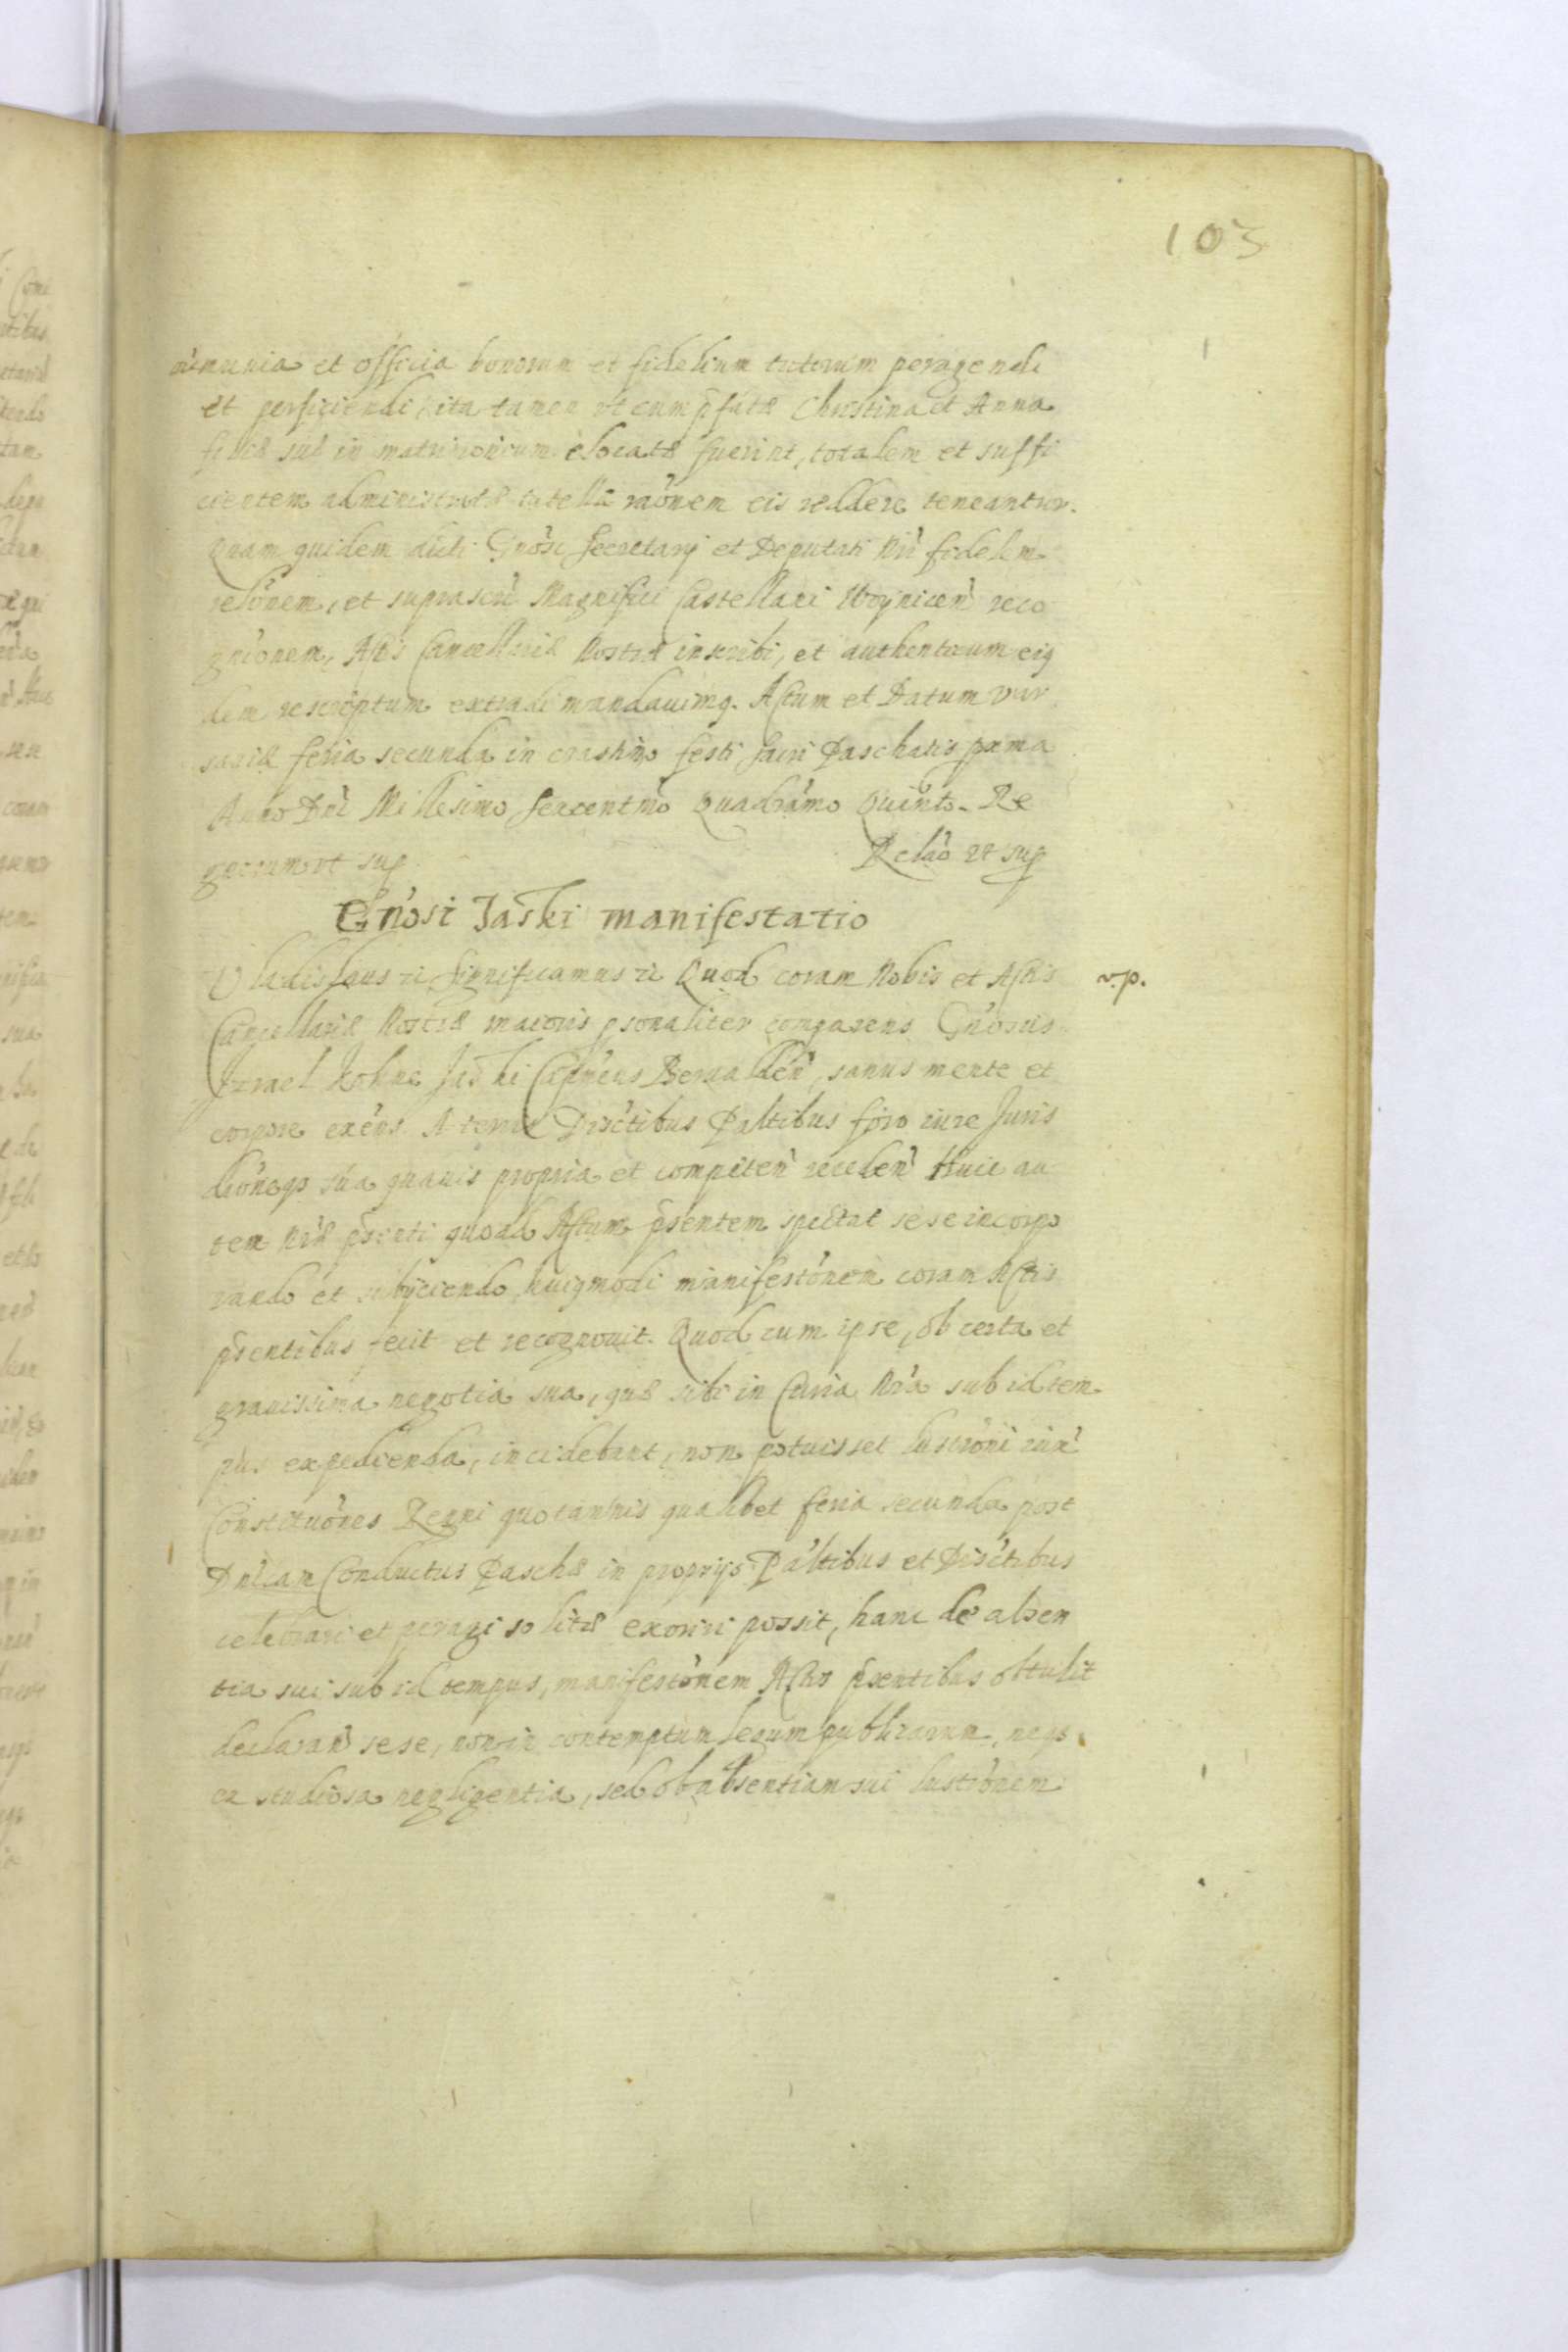 103
munia et officia bonorum et fidelium tutorum peragendi
et perficiendi, ita tamen ut cum p̃fatæ Christina et Anna
filiæ suæ in matrimonium elocatæ fuerint, totalem et suffi
cientem administratæ tutellæ raõnem eis reddere teneantur.
Quam quidem dicti Gnõsi Secretarij et Deputati Nri fidelem
relõnem, et suprascri Magnifici Castellani Woynicen reco
gniõnem, Actis Cancellariæ Nostræ inscribi, et authenticum eiq
dem rescriptum extradi mandauimq. Actum et Datum Var
sauiæ feria secunda in crastino festi sacri Paschatis proxima
Anno Dni Millesimo Sexcentmo Quadramo Quinto. Re
gnorum ut sup Relaõ ut sup
Gnosi Jaski manifestatio
Vladislaus zc Significamus zc Quod coram Nobis et Actis v.p.
Cancellariæ Nostræ maioris psonaliter comparens Gnõsus
Izrael Jaski Capneus sanus mente et
corpore exens A terris Disctibus Paltibus foro iure Juris
dionեqs sua quauis propria et competen receden Huic au
tem Nræ psenti quoad Actum p̃sentem spectat sese incorpo
rando et subijciendo huiqmodi manifestõnem coram Actis
p̃sentibus fecit et recognouit. Quod cum ipse, ob certa et
grauissima negotia sua, quæ sibi in Curia Nra sub id tem
pus expedienda, incidebant, non potuisset lustrõni iux
Constituõnes Regni quotannis qualibet feria secunda post
Dnicam Conductus Paschæ in proprijs Paltibus et Disctibus
celebrari et peragi solitæ exoriri possit, hanc de absen
tia sui sub id tempus, manifestõnem Actis p̃sentibus obtulit
declaran sese, non in contemptum legum publicarum, neqs
ex studiosa negligentia, sed ob absentiam sui lustrõnem